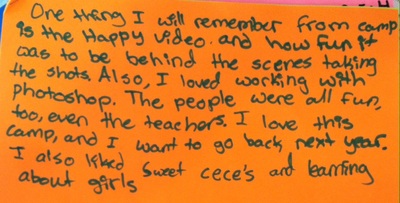 One thing I will remember from camp
is the Happy video. and how fun it
was to be behind the scenes taking
the shots. Also, I loved working with
photoshop. The people were all fun,
too, even the teachers. I love this
camp, and I want to go back, next year.
I also liked Sweet cece's and learning
about girls